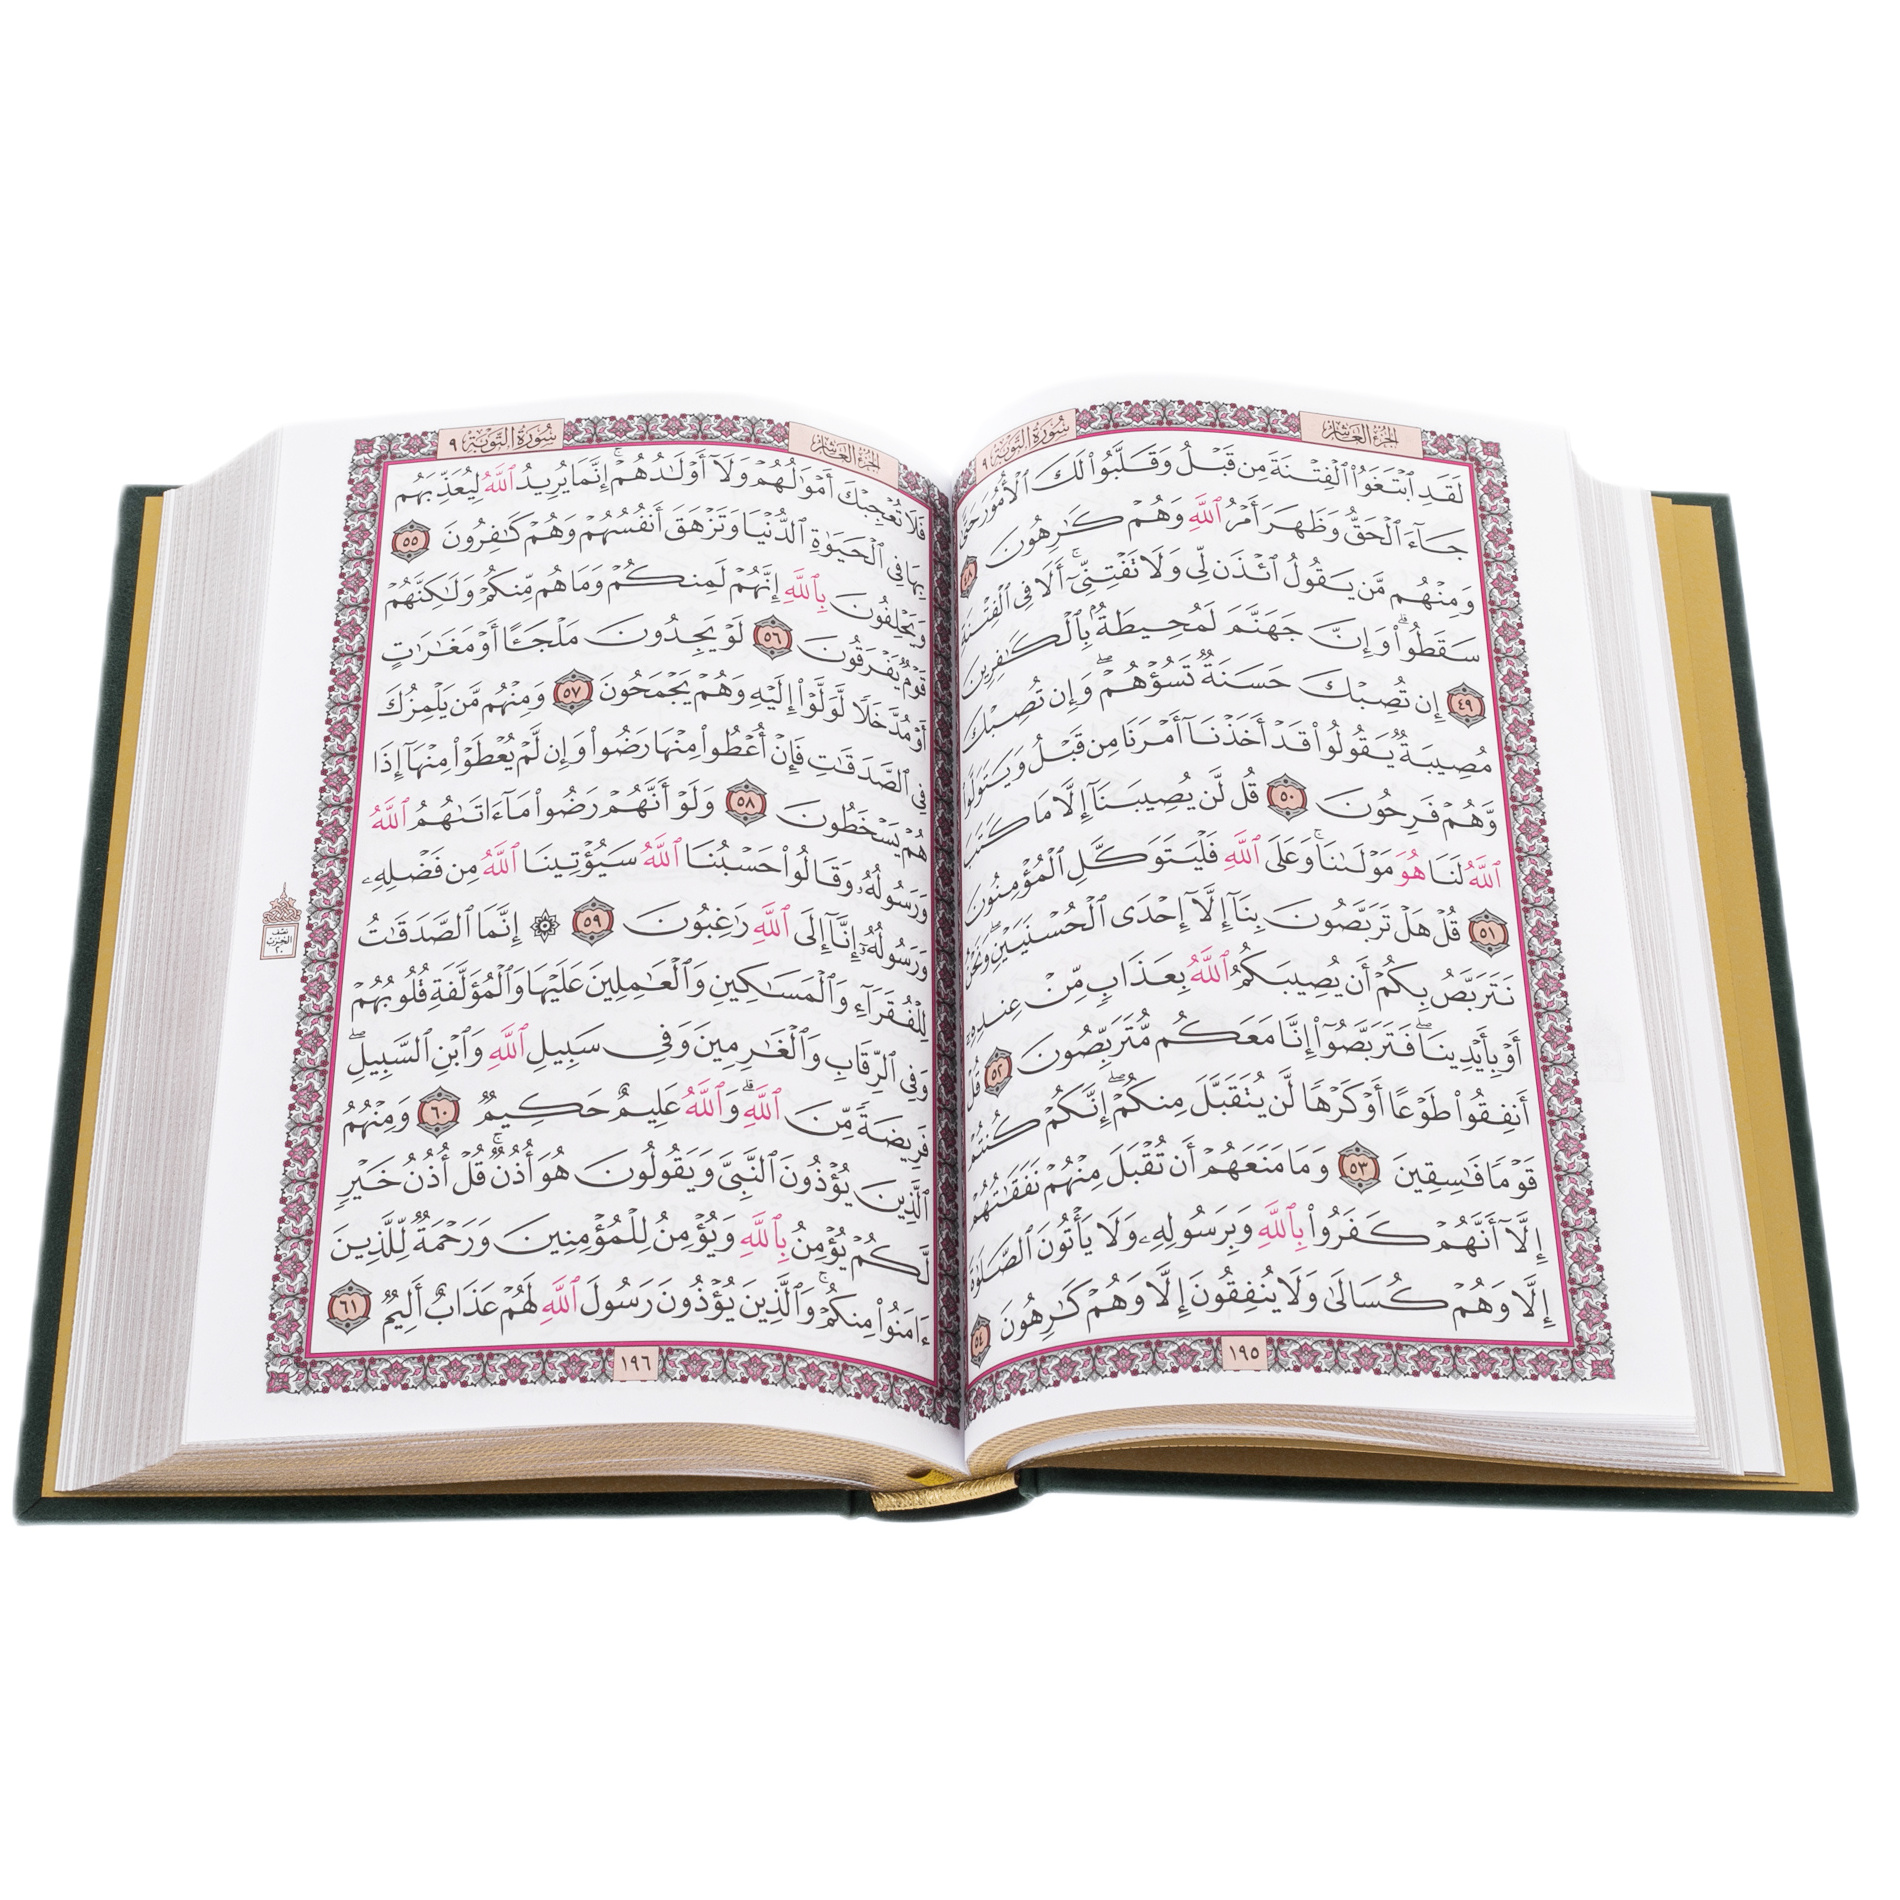 سُورَةُ التَّوۡبَةِ ٩
الجُزْءُ العَاشِرُ
لَقَدِ ٱبۡتَغَوُاْ ٱلۡفِتۡنَةَ مِن قَبۡلُ وَقَلَّبُواْ لَكَ ٱلۡأُمُورَ حَتَّىٰ
جَآءَ ٱلۡحَقُّ وَظَهَرَ أَمۡرُ ٱللَّهِ وَهُمۡ كَٰرِهُونَ ٤٨
وَمِنۡهُم مَّن يَقُولُ ٱئۡذَن لِّي وَلَا تَفۡتِنِّيٓۚ أَلَا فِي ٱلۡفِتۡنَةِ
سَقَطُواْۗ وَإِنَّ جَهَنَّمَ لَمُحِيطَةُۢ بِٱلۡكَٰفِرِينَ
٤٩ إِن تُصِبۡكَ حَسَنَةٞ تَسُؤۡهُمۡۖ وَإِن تُصِبۡكَ
مُصِيبَةٞ يَقُولُواْ قَدۡ أَخَذۡنَآ أَمۡرَنَا مِن قَبۡلُ وَيَتَوَلَّواْ
وَّهُمۡ فَرِحُونَ ٥٠ قُل لَّن يُصِيبَنَآ إِلَّا مَا كَتَبَ
ٱللَّهُ لَنَا هُوَ مَوۡلَىٰنَاۚ وَعَلَى ٱللَّهِ فَلۡيَتَوَكَّلِ ٱلۡمُؤۡمِنُونَ
٥١ قُلۡ هَلۡ تَرَبَّصُونَ بِنَآ إِلَّآ إِحۡدَى ٱلۡحُسۡنَيَيۡنِۖ وَنَحۡنُ
نَتَرَبَّصُ بِكُمۡ أَن يُصِيبَكُمُ ٱللَّهُ بِعَذَابٖ مِّنۡ عِندِهِۦٓ
أَوۡ بِأَيۡدِينَاۖ فَتَرَبَّصُوٓاْ إِنَّا مَعَكُم مُّتَرَبِّصُونَ ٥٢ قُلۡ
أَنفِقُواْ طَوۡعًا أَوۡ كَرۡهٗا لَّن يُتَقَبَّلَ مِنكُمۡۖ إِنَّكُمۡ كُنتُمۡ
قَوۡمٗا فَٰسِقِينَ ٥٣ وَمَا مَنَعَهُمۡ أَن تُقۡبَلَ مِنۡهُمۡ نَفَقَٰتُهُمۡ
إِلَّآ أَنَّهُمۡ كَفَرُواْ بِٱللَّهِ وَبِرَسُولِهِۦ وَلَا يَأۡتُونَ ٱلصَّلَوٰةَ
إِلَّا وَهُمۡ كُسَالَىٰ وَلَا يُنفِقُونَ إِلَّا وَهُمۡ كَٰرِهُونَ ٥٤
١٩٥
سُورَةُ التَّوۡبَةِ ٩
الجُزْءُ العَاشِرُ
فَلَا تُعۡجِبۡكَ أَمۡوَٰلُهُمۡ وَلَآ أَوۡلَٰدُهُمۡۚ إِنَّمَا يُرِيدُ ٱللَّهُ لِيُعَذِّبَهُم
بِهَا فِي ٱلۡحَيَوٰةِ ٱلدُّنۡيَا وَتَزۡهَقَ أَنفُسُهُمۡ وَهُمۡ كَٰفِرُونَ ٥٥
وَيَحۡلِفُونَ بِٱللَّهِ إِنَّهُمۡ لَمِنكُمۡ وَمَا هُم مِّنكُمۡ وَلَٰكِنَّهُمۡ
قَوۡمٞ يَفۡرَقُونَ ٥٦ لَوۡ يَجِدُونَ مَلۡجَـًٔا أَوۡ مَغَٰرَٰتٍ
أَوۡ مُدَّخَلٗا لَّوَلَّوۡاْ إِلَيۡهِ وَهُمۡ يَجۡمَحُونَ ٥٧ وَمِنۡهُم مَّن يَلۡمِزُكَ
فِي ٱلصَّدَقَٰتِ فَإِنۡ أُعۡطُواْ مِنۡهَا رَضُواْ وَإِن لَّمۡ يُعۡطَوۡاْ مِنۡهَآ إِذَا
هُمۡ يَسۡخَطُونَ ٥٨ وَلَوۡ أَنَّهُمۡ رَضُواْ مَآ ءَاتَىٰهُمُ ٱللَّهُ
وَرَسُولُهُۥ وَقَالُواْ حَسۡبُنَا ٱللَّهُ سَيُؤۡتِينَا ٱللَّهُ مِن فَضۡلِهِۦ
وَرَسُولُهُۥٓ إِنَّآ إِلَى ٱللَّهِ رَٰغِبُونَ ٥٩ ۞ إِنَّمَا ٱلصَّدَقَٰتُ
لِلۡفُقَرَآءِ وَٱلۡمَسَٰكِينِ وَٱلۡعَٰمِلِينَ عَلَيۡهَا وَٱلۡمُؤَلَّفَةِ قُلُوبُهُمۡ
وَفِي ٱلرِّقَابِ وَٱلۡغَٰرِمِينَ وَفِي سَبِيلِ ٱللَّهِ وَٱبۡنِ ٱلسَّبِيلِۖ
فَرِيضَةٗ مِّنَ ٱللَّهِۗ وَٱللَّهُ عَلِيمٌ حَكِيمٞ ٦٠ وَمِنۡهُمُ
ٱلَّذِينَ يُؤۡذُونَ ٱلنَّبِيَّ وَيَقُولُونَ هُوَ أُذُنٞۚ قُلۡ أُذُنُ خَيۡرٖ
لَّكُمۡ يُؤۡمِنُ بِٱللَّهِ وَيُؤۡمِنُ لِلۡمُؤۡمِنِينَ وَرَحۡمَةٞ لِّلَّذِينَ
ءَامَنُواْ مِنكُمۡۚ وَٱلَّذِينَ يُؤۡذُونَ رَسُولَ ٱللَّهِ لَهُمۡ عَذَابٌ أَلِيمٞ ٦١
١٩٦
نصف
الحزب
٢٠